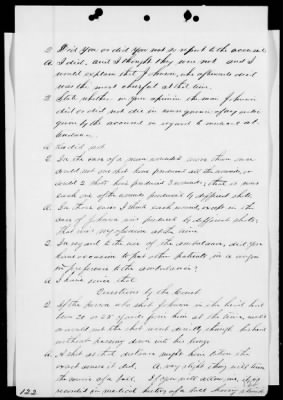 Q Did you or did you not so report to the accused
A I did, and I thought they were not and I
would explain that Johnson, who afterwards died
was the most cheerful at that time.
Q State whether in your opinion the man Johnson
did or did not die in consequence of any order
given by the accused in regard to
A He did not
Q In the case of a man wounded more than once
could not one shot have produced all the wounds, or
could 2 shots have produced 3 wounds; that is was
each one of the wounds produced by different shots
A In those cases I think each wound, except in the
case of Johnson was produced by different shots.
That was my opinion at the time
Q In regard to the use of the ambulance, did you
have occasion to put other patients in a wagon
in preference to the ambulance?
A I have since that
Questions by the Court
Q If the person who shot Johnson in the head had
been 20 or 25 yards from him at the time, would
not the shot went directly through his hand
without passing down into his lungs
A A shot at that distance might have taken the
exact course it did. A very slight thing will turn
the course of a ball. If you will allow me, it is
recorded in medical history of a ball having struck
122